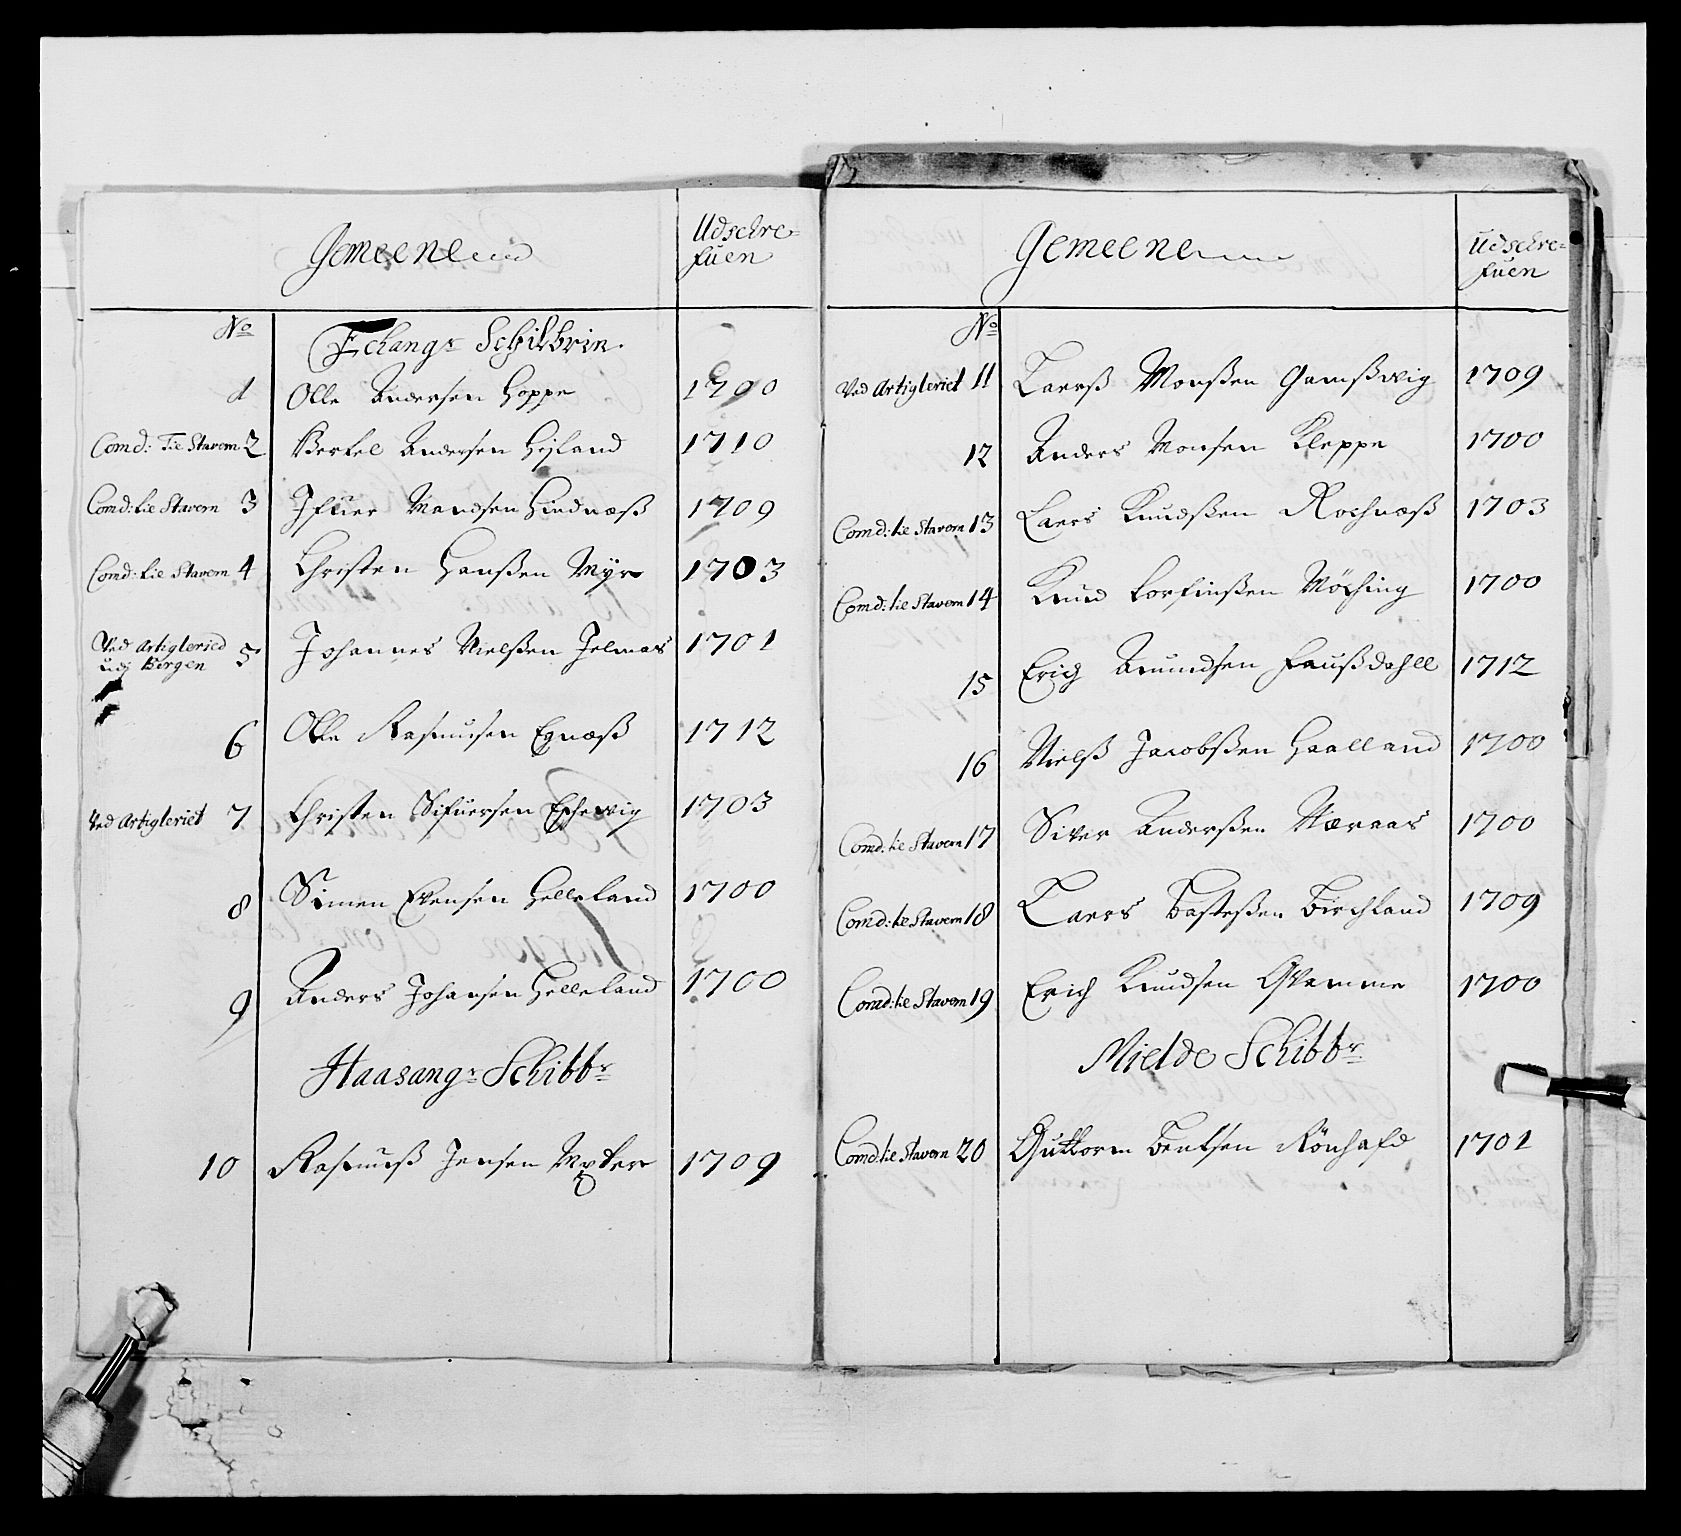 Gemeene
Udschre=
fuen
No
Echangr Schibrin
1 Olle Andersen Hoppe 1700
Comd: Til Stavern 2 Bertel Andersen Hijland 1710
Comd: til Stavern 3 Ifuer Mandsen Hindnæß 1709
Comd: til Stavern 4 Christen Hanßen Myr 1703
Ved Artigleried
udj Bergen 5 Johannes Nielßen Jelmas 1701
6 Olle Rasmusen Egnæß 1712
Ved Artigleriet 7 Christen Sifuersen Eschevig 1703
8 Simen Evensen Helleland 1700
9 Anders Johansen Helleland 1700
Haasangr Schibbr
10 Rasmuß Jensen 1709
Gemeene
Udschre=
fuen
No
Ved Artigleriet 11 Laerß Monßen Gamßvig 1709
12 Anders Monsen Kleppe 1700
Comd: til Stavern 13 Laers Knudßen Rochnæß 1703
Comd: til Stavern 14 Knud Torfinßen Möching 1700
15 Erig Amundsen Faußdahll 1712
16 Nielß Jacobßen Haalland 1700
Comd: til Stavern 17 Siver Anderßen Næraas 1700
Comd: til Stavern 18 Laers Basteßen Birchland 1709
Comd: til Stavern 19 Erich Knudsen Qvamme 1700
Mielde Schibbr
Comd til Stavern 20 Guttorm Bentsen Rönhafd 1701